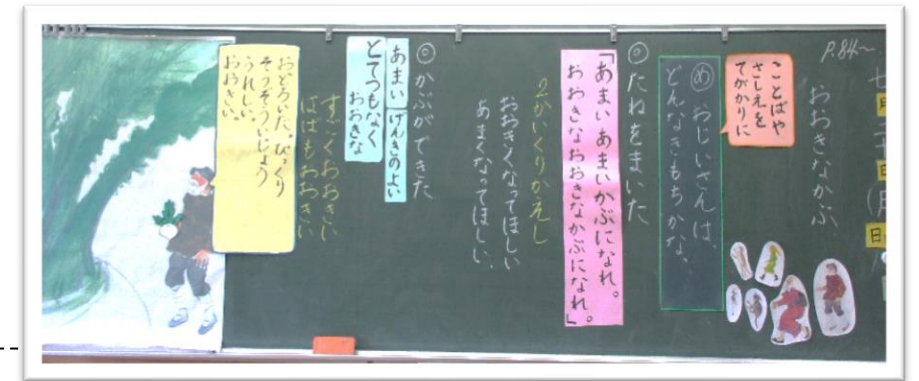 七月二十
日(月
日
P.84〜
おおきなかぶ
ことばや
さしえを
てがかりに
め おじいさんは、
どんなきもちかな。
◎たねをまいた
「あまい あまいかぶになれ。
おおきなおおきなかぶになれ」。
2かいくりかえし
おおきくなってほしい
あまくなってほしい、
◎かぶができた
あまい げんきのよい
とてつもなく
おおきな
すごくおおきい
はばもおおきい
おどろいた。びっくり
そうぞういじょう
うれしい。
おおきい。